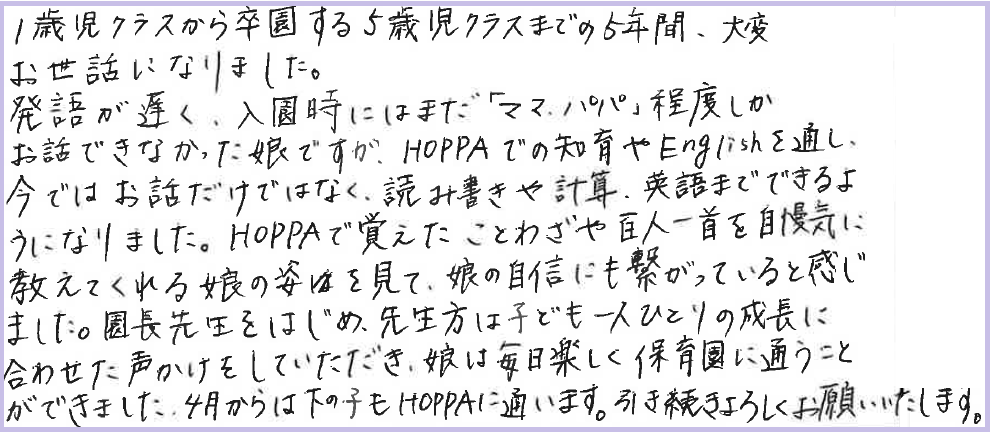 1歳児クラスから卒園する5歳児クラスまでの5年間、大変
お世話になりました。
発語が遅く、入園時にはまだ「ママ、パパ」程度しか
お話できなかった娘ですが、HOPPAでの知育やEnglishを通し、
今ではお話だけではなく、読み書きや計算、英語までできるよ
うになりました。HOPPAで覚えたことわざや百人一首を自慢気に
教えてくれる娘の姿はを見て、娘の自信にも繋がっていると感じ
ました。園長先生をはじめ、先生方は子ども一人ひとりの成長に
合わせた声かけをしていただき、娘は毎日楽しく保育園に通うこと
ができました。4月からは下の子もHOPPAに通います。引き続きよろしくお願いいたします。